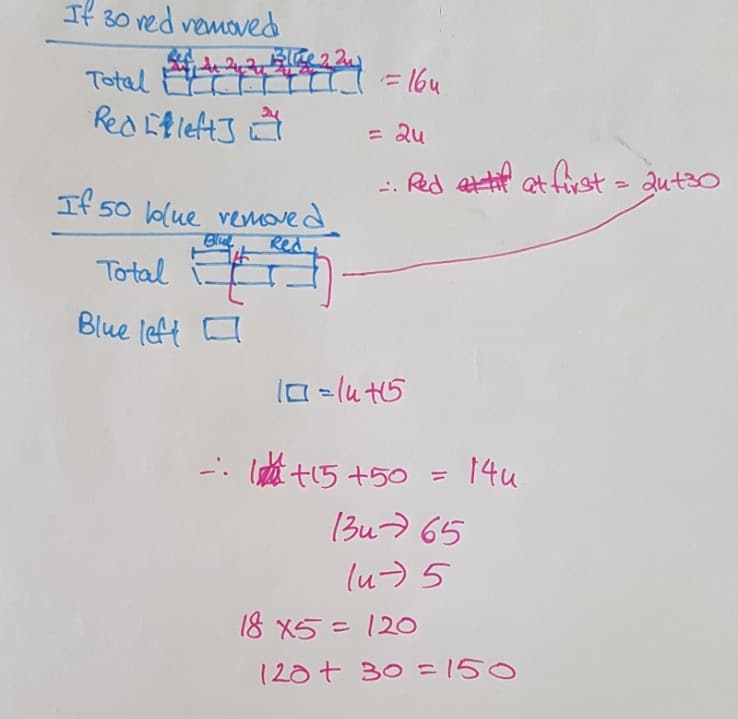 If 30 red removed
Red Blue
2u 2u 2u 2u 2u 2u 2 2u
Total = 16u
Red [1 left] 2u = 2u
∴ Red at first = 2u+30
If 50 blue removed
Blue Red
Total
Blue left
1□ = 1u+15
∴ 1u +15 +50 = 14u
13u → 65
1u → 5
18 x5 = 120
120 + 30 = 150